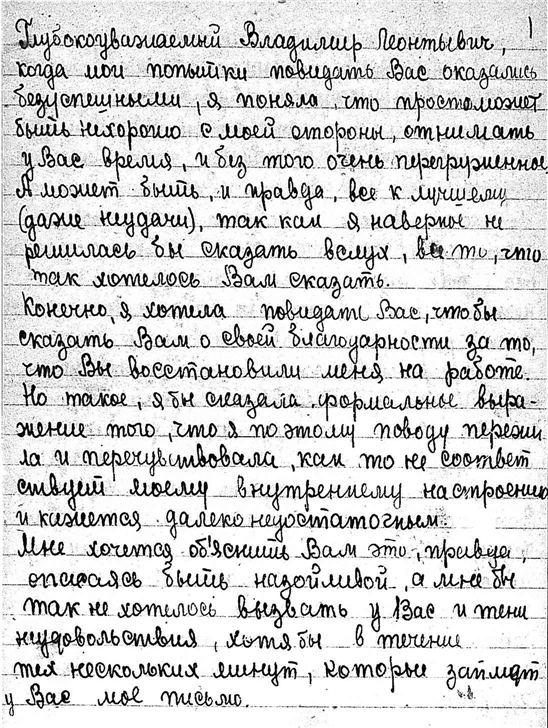 1
Глубокоуважаемый Владимир Леонтьевич,
когда мои попытки повидать Вас оказались
безуспешными, я поняла, что просто может
быть нехорошо с моей стороны, отнимать
у Вас время, и без того очень перегруженное.
А может быть, и правда, все к лучшему
(даже неудачи), так как я наверное не
решилась бы сказать вслух, все то, что
так хотелось Вам сказать.
Конечно, я хотела повидать Вас, чтобы
сказать Вам о своей благодарности за то,
что Вы восстановили меня на работе.
Но такое, я бы сказала формальное выра-
жение того, что я по этому поводу пережи
ла и перечувствовала, как то не соответ
ствует моему внутреннему настроению
и кажется далеко недостаточным.
Мне хочется об'яснить Вам это, правда,
опасаясь быть назойливой, а мне бы
так не хотелось вызвать у Вас и тени
неудовольствия, хотя бы в течение
тех нескольких минут, которые займет
у Вас мое письмо.